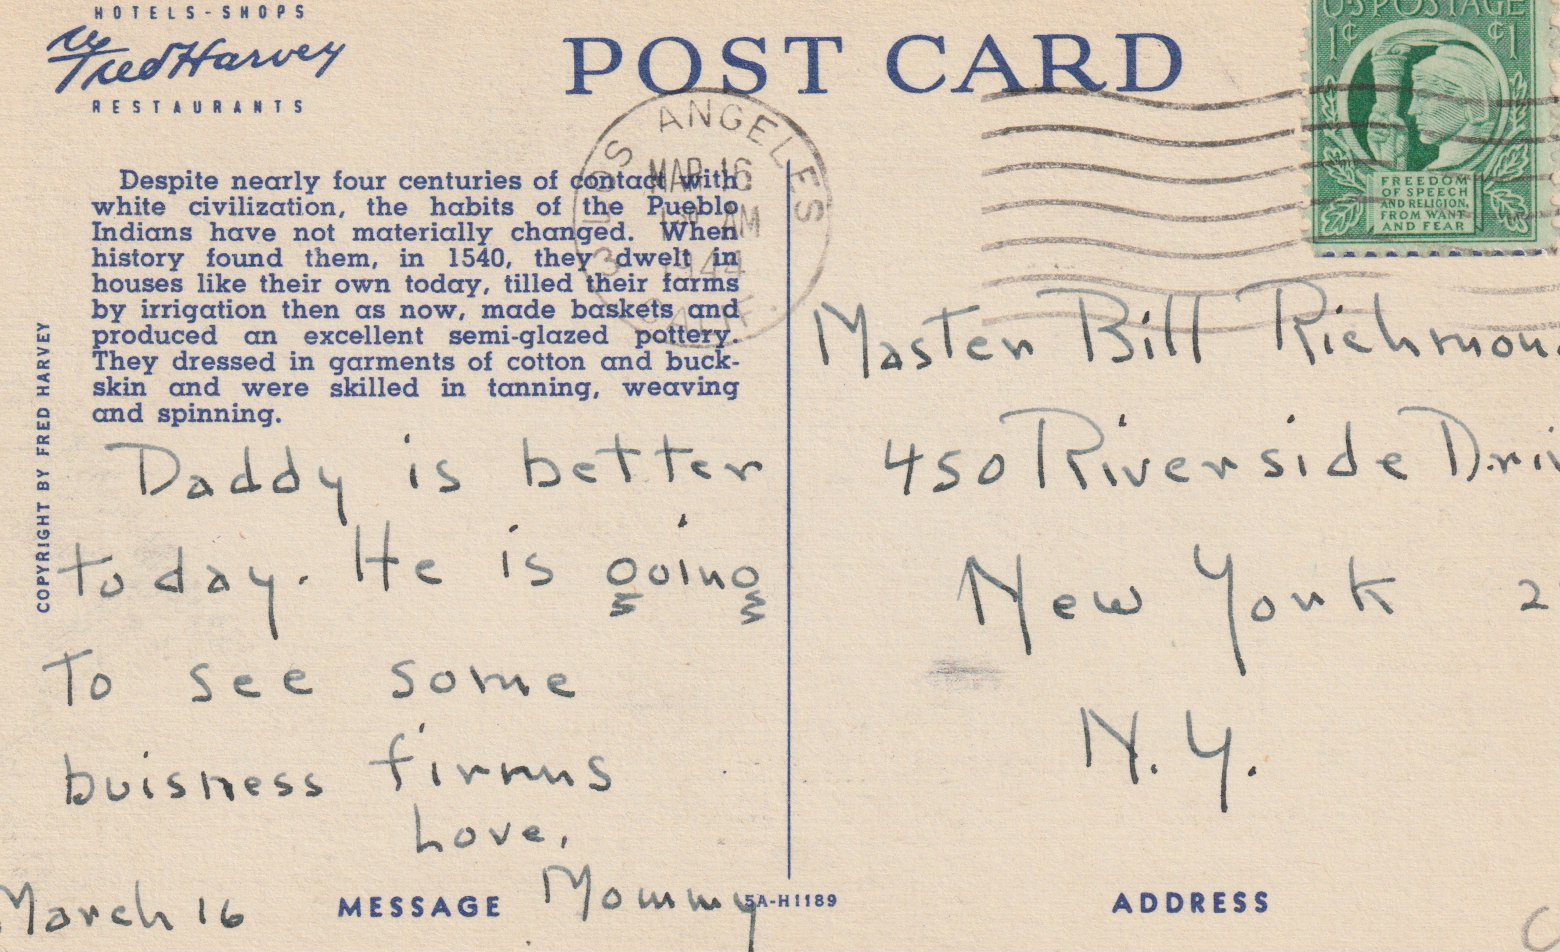 HOTELS-SHOPS
Fred Harvey
RESTAURANTS
POST CARD
US POSTAGE
1¢ ¢1
FREEDOM
OF SPEECH
AND RELIGION,
FROM WANT
AND FEAR
LOS ANGELES
MAR 16
AM
1944
CALIF.
3
Despite nearly four centuries of contact with
white civilization, the habits of the Pueblo
Indians have not materially changed. When
history found them, in 1540, they dwelt in
houses like their own today, tilled their farms
by irrigation then as now, made baskets and
produced an excellent semi-glazed pottery.
They dressed in garments of cotton and buck-
skin and were skilled in tanning, weaving
and spinning.
COPYRIGHT BY FRED HARVEY
Daddy is better
today. He is going
to see some
buisness firmus
Love,
Mommy
March 16
MESSAGE
5A-H1189
Master Bill Richmon
450 Riverside Driv
New York 2
N.Y.
ADDRESS